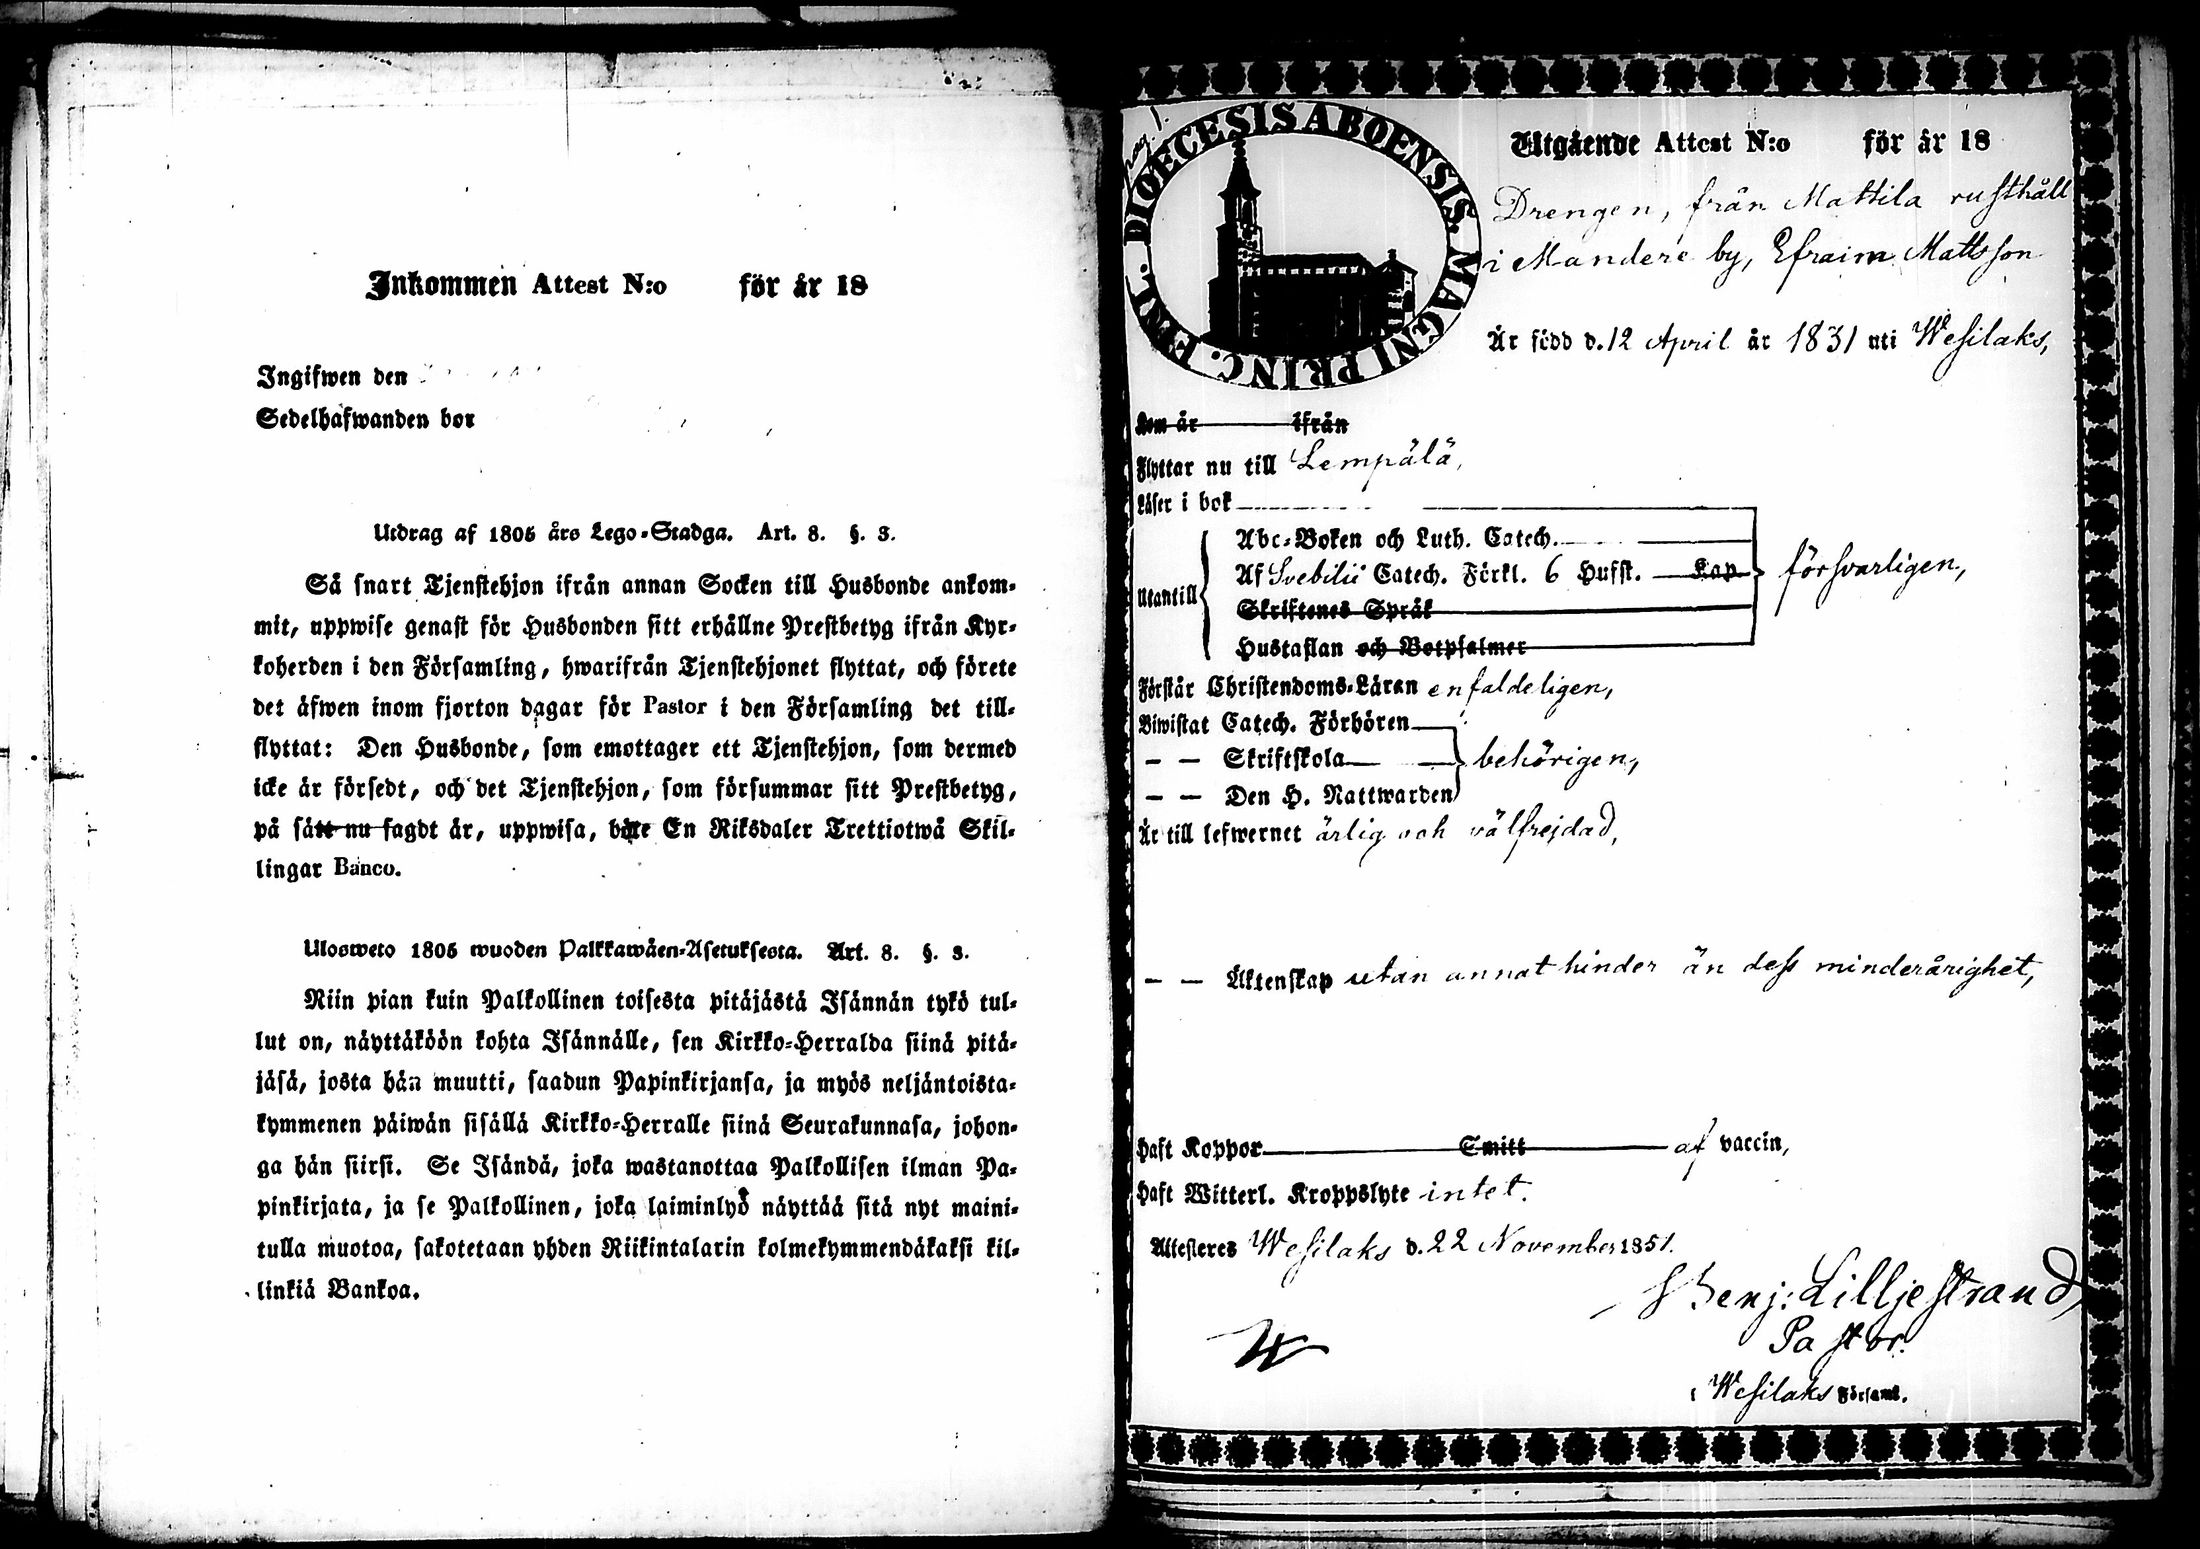 Inkommen Attest N:o för år 18
Ingifwen den
Sedelhafwanden bor
Utdrag af 1805 års Lego-Stadga. Art. 8. §. 3.
Så snart Tjenstehjon ifrån annan Socken till Husbonde ankom-
mit, uppwise genast för Husbonden sitt erhållne Prestbetyg ifrån Kyr-
koherden i den Församling, hwarifrån Tjenstehjonet flyttat, och förete
det äfwen inom fjorton dagar för Pastor i den Församling det till-
flyttat: Den Husbonde, som emottager ett Tjenstehjon, som dermed
icke är försedt, och det Tjenstehjon, som försummar sitt Prestbetyg,
på sätt nu sagdt är, uppwisa, böte En Riksdaler Trettiotwå Skil-
lingar Banco.
Ulosweto 1805 wuoden Palkkawäen-Asetuksesta. Art. 8. §. 3.
Niin pian kuin Palkollinen toisesta pitäjästä Isännän tykö tul-
lut on, näyttäköön kohta Isännälle, sen Kirkko-Herralda siinä pitä-
jäsä, josta hän muutti, saadun Papinkirjansa, ja myös neljäntoista-
kymmenen päiwän sisällä Kirkko-Herralle siinä Seurakunnasa, johon-
ga hän siirsi. Se Isändä, joka wastanottaa Palkollisen ilman Pa-
pinkirjata, ja se Palkollinen, joka laiminlyö näyttää sitä nyt maini-
tulla muotoa, sakotetaan yhden Riikintalarin kolmekymmendäkaksi kil-
linkiä Bankoa.
pag. 1.
DIOECESIS ABOENSIS. MAGNI PRINC. FENL.
Utgående Attest N:o för år 18
Drengen, från Mattila rusthåll
i Mandere by, Efraim Mattsson
Är född d. 12 April år 1831 uti Wesilaks,
Kom år ifrån
Flyttar nu till Lempälä,
Läser i bok
Utantill
Abc-Boken och Luth. Catech.
Af Svebilii Catech. Förkl. 6 Hufst. Kap
försvarligen,
Skriftenes Språk
Hustaflan och Botpsalmer
Förstår Christendoms-Läran enfaldeligen,
Biwistat Catech. Förhören
— — Skriftskola behörigen,
— — Den H. Nattwarden
Är till lefwernet ärlig och välfrejdad,
— — Äktenskap utan annat hinder än dess minderårighet,
Haft Koppor Smitt af vaccin,
Haft Witterl. Kroppslyte intet.
Attesteres Wesilaks d. 22 November 1851.
Benj: Lilljestrand
Pastor.
i Wesilaks Församl.